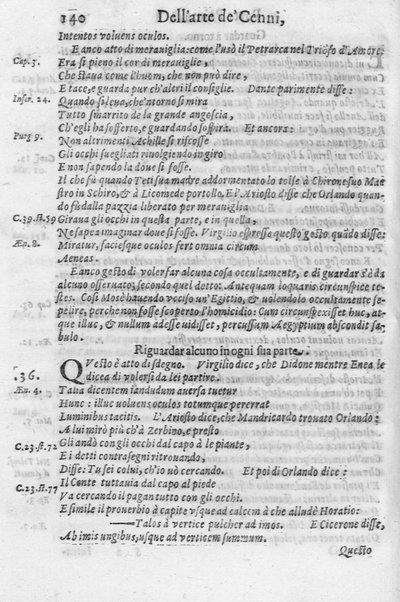 140 Dell'arte de' Cenni,
Intentos voluens oculos.
E anco atto di merauiglia: come l'usò il Petrarca nel Triõfo d'Amore:
Cap. 3. Era sì pieno il cor di merauiglie,
Che staua come l'huom, che non può dire,
E tace, e guarda pur ch'altri il consiglie. Dante parimente disse:
Infer. 24. Quando si leua, che'ntorno si mira
Tutto smarrito de la grande angoscia,
Ch'egli ha sofferto, e guardando sospira. Et ancora:
Purg 9. Non altrimenti Achille si riscosse
Gli occhi suegliati riuolgendo in giro
E non sapendo là doue si fosse.
Il che fù quando Teti sua madre addormentato lo tolse à Chirone suo Mae
stro in Schiro, & à Licomede portollo. Et l'Ariosto disse che Orlando quan-
do fù dalla pazzia liberato per merauiglia
C. 39. st. 59 Giraua gli occhi in questa parte, e in quella,
Ne sapea imaginar doue si fosse. Virgilio espresse questo gesto quãdo disse:
Æp. 8. Miratur, facilesque oculos fert omnia circum
Aeneas.
E anco gesto di voler far alcuna cosa occultamente, e di guardar s'è da
alcuno osseruato; secondo quel detto: Antequam loquaris circunspice te-
stes. Così Mosè hauendo vcciso vn'Egittio, & volendolo occultamente se-
pelire, perche non fosse scoperto l'homicidio: Cum circunspexisset huc, at-
que illuc, & nullum adesse uidisset, percussum Aegyptium abscondit sa-
bulo.
Riguardar alcuno in ogni sua parte.
36. QVesto è atto di sdegno. Virgilio dice, che Didone mentre Enea le
dicea di volersi da lei partire.
Æn. 4. Talia dicentem iandudum auersa tuetur
Hunc: illuc uoluens oculos totumque pererrat
Luminibus tacitis. L'Ariosto dice, che Mandricardo trouato Orlando:
A lui mirò più ch'à Zerbino, e presto
C. 23. st. 72 Gli andò con gli occhi dal capo à le piante,
E i detti contrasegni ritrouando,
Disse: Tu sei colui, ch'io uò cercando. Et poi di Orlando dice:
C. 23. st. 77 Il Conte tuttauia dal capo al piede
Va cercando il pagan tutto con gli occhi.
E simile il prouerbio à capite vsque ad calcem à che allude Horatio:
—Talos à vertice pulcher ad imos. E Cicerone disse,
Ab imis ungibus, usque ad verticem summum.
Questo